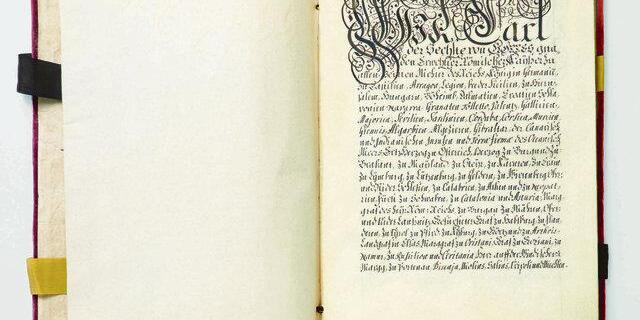 Wir Carl
der Sechste von GOTTES gna,
den Erwehlter Römischer Kaÿser zu
allen Zeiten Mehrer des Reichs, König in Germanien,
zu Castilien, Arragon, Legion, beeder Sicilien, zu Hieru,
salem, Hungarn, Böheimb, Dalmatien, Croatien, Scla,
vonien, Navarra, Granaten, Tolleto, Valentz, Gallicia,
Majorica, Sevilien, Sardinien, Corduba, Corsica, Murcien,
Giennis, Algarbien, Algezieren, Gibraltar, der Canarisch,
und Indianischen Insulen und Terra firma des Oceanisch,
Meers, Ertzherzog zu Österreich, Herzog zu Burgund, zu
Brabant, zu Maÿland, zu Steÿr, zu Kärnten, zu Crain,
zu Lymburg, zu Lützenburg, zu Geldern, zu Würtemberg, Ober,
und Nider Schlesien, zu Calabrien, zu Athen und zu Neopat,
rien, Fürst zu Schwaben, zu Catalonia und Asturia, Marg,
graf des Heÿl: Röm: Reichs, zu Burgau, zu Mähren, Ober,
und Nider Laußnitz, Gefürsteter Graf zu Habspurg, zu Flan,
dern, zu Tÿrol, zu Pfird, zu Kÿburg, zu Görtz und zu Arthois,
Landgraf in Elsas, Marggraf zu Oristani, Graf zu Goziani, zu
Namur, zu Rusilion und Ceritania, Herr auf der Windischen
Margg, zu Portenau, Biscaja, Molins, Salins, Tripoli und Mecheln.